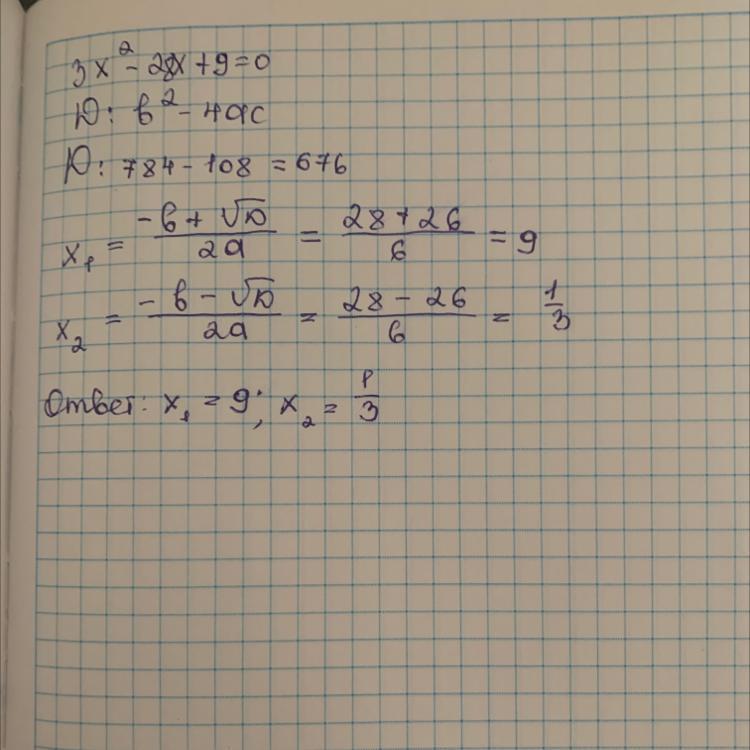 3x² - 28x + 9 = 0
D: b² - 4ac
D: 784 - 108 = 676
x₁ = (-b + √D)/(2a) = (28 + 26)/6 = 9
x₂ = (-b - √D)/(2a) = (28 - 26)/6 = 1/3
Ответ: x₁ = 9; x₂ = 1/3